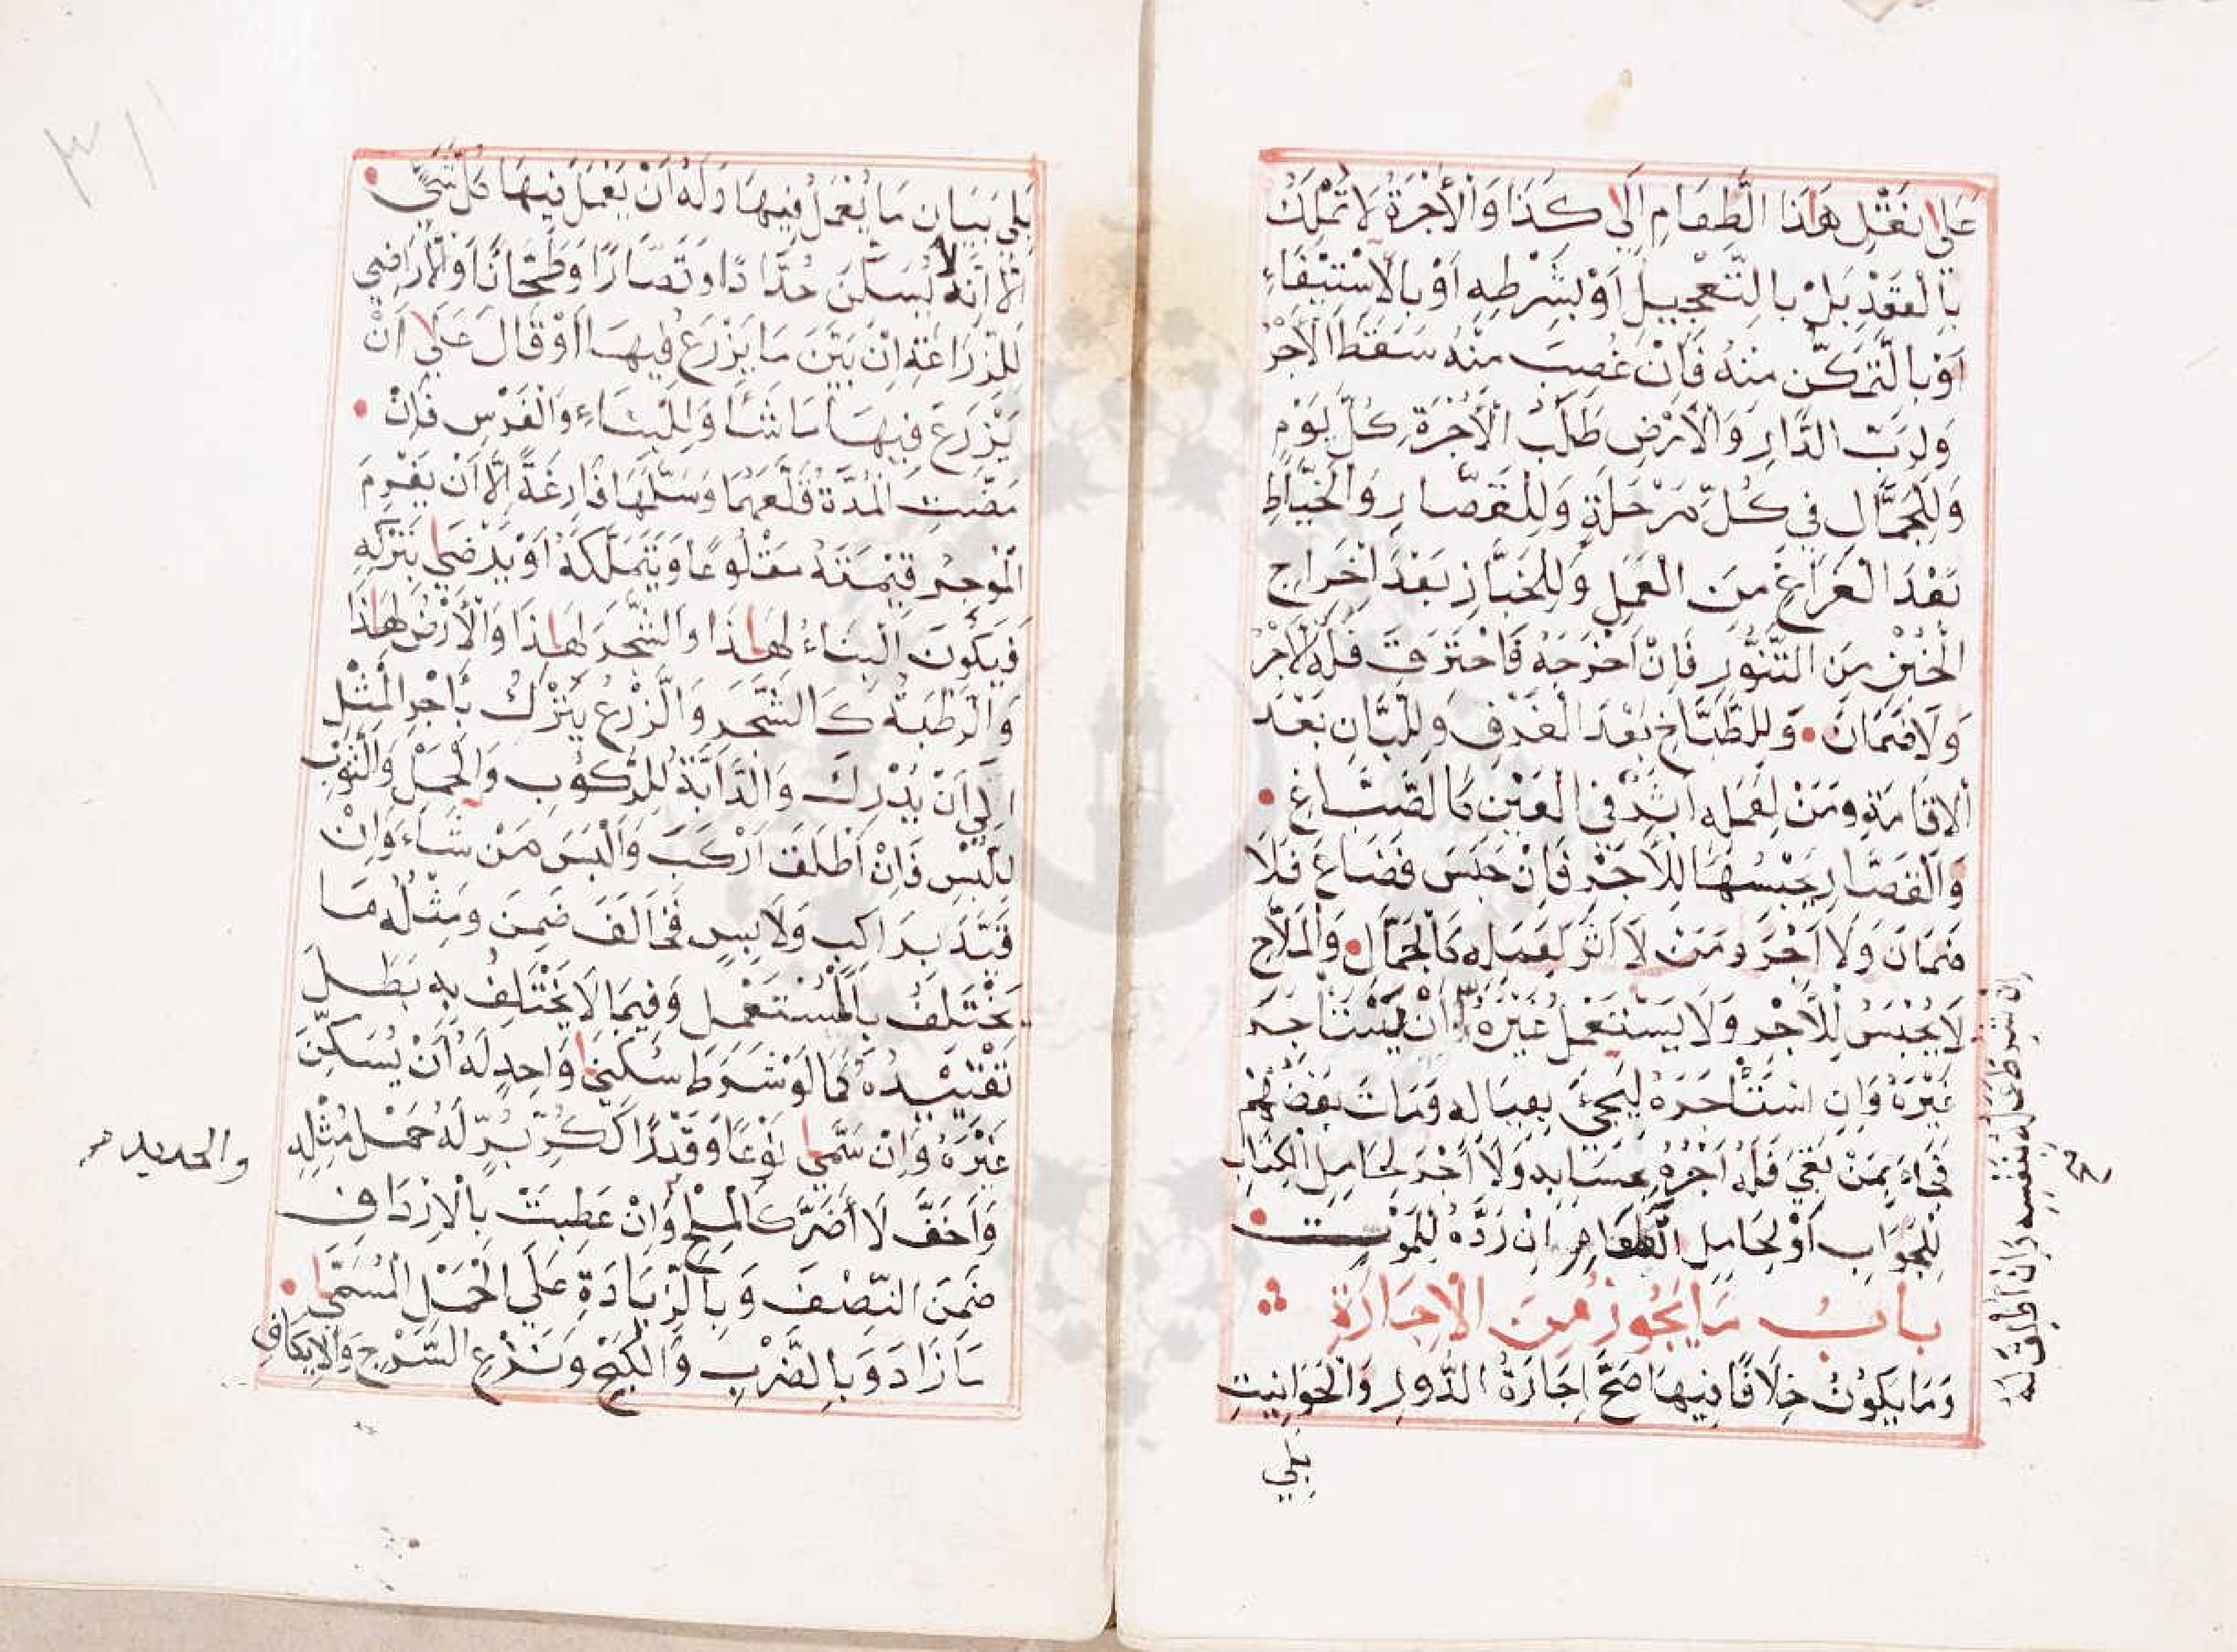 عَلٰي نَقْلِ هٰذَا الطَّعَامِ اِلٰي كَذَا وَالْأُجْرَةُ لَا تُمْلَكُ
بِالْعَقْدِ بَلْ بِالتَّعْجِيلِ اَوْ بِشَرْطِهِ اَوْ بِالْاِسْتِيْفَاءِ
اَوْ بِالتَّمَكُّنِ مِنْهُ فَاِنْ غُصِبَ مِنْهُ سَقَطَ الْاَجْرُ
وَلِرَبِّ الدَّارِ وَالْاَرْضِ طَلَبُ الْأُجْرَةِ كُلَّ يَوْمٍ
وَلِلْجَمَّالِ فِي كُلِّ مَرْحَلَةٍ وَلِلْقَصَّارِ وَالْخَيَّاطِ
بَعْدَ الْفَرَاغِ مِنَ الْعَمَلِ وَلِلْخَبَّازِ بَعْدَ اِخْرَاجِ
الْخُبْزِ مِنَ التَّنُّورِ فَاِنْ اَخْرَجَهُ فَاحْتَرَقَ فَلَهُ الْاَجْرُ
وَلَا ضَمَانَ وَلِلطَّبَّاخِ بَعْدَ الْغَرْفِ وَلِلَّبَّانِ بَعْدَ
الْاِقَامَةِ وَمَنْ لِعَمَلِهِ اَثَرٌ فِي الْعَيْنِ كَالصَّبَّاغِ
وَالْقَصَّارِ يَحْبِسُهَا لِلْاَجْرِ فَاِنْ حَبَسَ فَضَاعَ فَلَا
ضَمَانَ وَلَا اَجْرَ وَمَنْ لَا اَثَرَ لِعَمَلِهِ كَالْحَمَّالِ وَالْمَلَّاحِ
لَا يَحْبِسُ لِلْاَجْرِ وَلَا يَسْتَعْمِلُ غَيْرَهُ اَنْ يَسْتَأجِرَ
غَيْرَهُ وَاِنِ اسْتَأْجَرَهُ لِيَجِئَ بِعِيَالِهِ وَمَاتَ بَعْضُهُمْ
فَجَاءَ بِمَنْ بَقِيَ فَلَهُ اَجْرُهُ بِحِسَابِهِ وَلَا اَجْرَ لِحَامِلِ الْكِتَابِ
لِلْجَوَابِ اَوْ لِحَامِلِ الطَّعَامِ اِنْ رَدَّهُ لِلْمَوْتِ
بَابُ مَا يَجُوزُ مِنَ الْاِجَارَةِ
وَمَا يَكُوْنُ خِلَافًا فِيهَا صَحَّ اِجَارَةُ الدُّورِ وَالْحَوَانِيتِ
بِلٰي
ان شرط عمله بنفسه وان اطلق له
بِلٰي بَيَانِ مَا يُعْمَلُ فِيهَا وَلَهُ اَنْ يَعْمَلَ فِيهَا كُلَّ شَيْءٍ
اِلَّا اَنَّهُ لَا يُسْكِنَ حَدَّادًا وَقَصَّارًا وَطَحَّانًا وَالْاَرَاضِي
لِلزِّرَاعَةِ اِنْ بَيَّنَ مَا يَزْرَعُ فِيهَا اَوْ قَالَ عَلٰي اَنْ
يَزْرَعَ فِيهَا مَا شَاءَ وَلِلْبِنَاءِ وَالْغَرْسِ فَاِنْ
مَضَتِ الْمُدَّةُ قَلَعَهُمَا وَسَلَّمَهَا فَارِغَةً اِلَّا اَنْ يَغْرِمَ
الْمُوجِرُ قِيْمَتَهُ مَقْلُوعًا وَيَتَمَلَّكَهُ اَوْ يَرْضٰي بِتَرْكِهِ
فَيَكُوْنَ الْبِنَاءُ لِهٰذَا وَالشَّجَرُ لِهٰذَا وَالْاَرْضُ لِهٰذَا
وَالرَّطْبَةُ كَالشَّجَرِ وَالزَّرْعُ يُتْرَكُ بِاَجْرِ الْمِثْلِ
اِلٰي اَنْ يُدْرِكَ وَالدَّابَّةُ لِلرُّكُوبِ وَالْحَمْلِ وَالثَّوْبُ
لِلُّبْسِ فَاِنْ اَطْلَقَ اَرْكَبَ وَاَلْبَسَ مَنْ شَاءَ وَاِنْ
قَيَّدَ بِرَاكِبٍ وَلَابِسٍ فَخَالَفَ ضَمِنَ وَمِثْلُهُ مَا
يَخْتَلِفُ بِالْمُسْتَعْمِلِ وَفِيمَا لَا يَخْتَلِفُ بِهِ بَطَلَ
تَقْيِيْدُهُ كَمَا لَوْ شَرَطَ سُكْنٰي وَاحِدٍ لَهُ اَنْ يُسْكِنَ
غَيْرَهُ وَاِنْ سَمّٰي نَوْعًا وَقَدْرًا كَكُرِّ بُرٍّ لَهُ حَمْلُ مِثْلِهِ
وَاَخَفَّ لَا اَضَرَّ كَالْمِلْحِ وَاِنْ عَطِبَتْ بِالْاِرْدَافِ
والحديد
ضَمِنَ النِّصْفَ وَبِالزِّيَادَةِ عَلَي الْحَمْلِ الْمُسَمّٰي
مَا زَادَ وَبِالضَّرْبِ وَالْكَبْحِ وَنَزْعِ السَّرْجِ وَالْاِيكَافِ